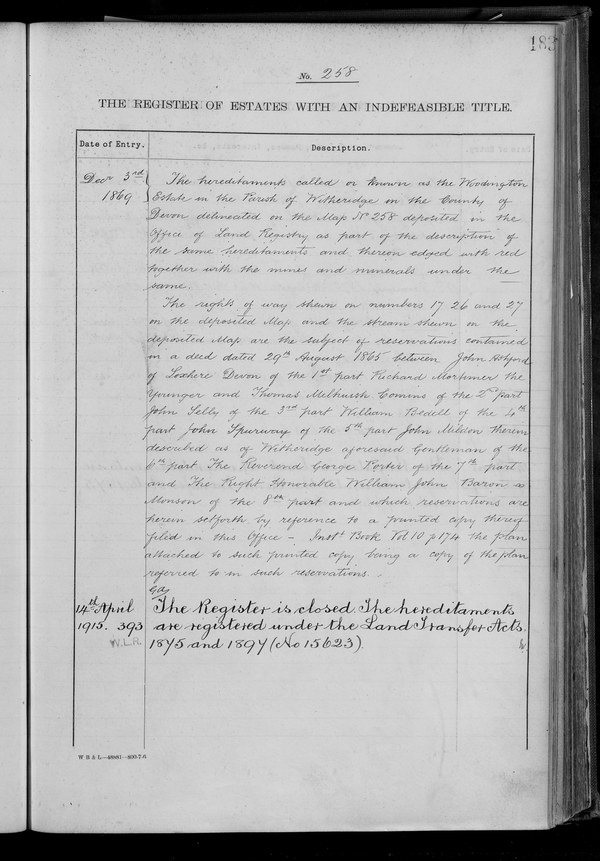 183
No. 258
THE REGISTER OF ESTATES WITH AN INDEFEASIBLE TITLE.
Date of Entry.
Description.
Decr 3rd
1869
The hereditaments called or known as the Woodington
Estate in the Parish of Witheridge in the County of
Devon delineated on the Map No 258 deposited in the
Office of Land Registry as part of the description of
the same hereditaments and thereon edged with red
together with the mines and minerals under the
same.
The rights of way shewn on numbers 17 26 and 27
on the deposited Map and the stream shewn on the
deposited Map are the subject of reservations contained
in a deed dated 29th August 1865 between John Ashford
of Loxbere Devon of the 1st part Richard Mortimer the
Younger and Thomas Melhuish Comins of the 2nd part
John Selly of the 3rd part William Bedell of the 4th
part John Spurway of the 5th part John Mildon therein
described as of Witheridge aforesaid Gentleman of the
6th part The Reverend George Porter of the 7th part
and The Right Honorable William John Baron
Monson of the 8th part and which reservations are
herein setforth by reference to a printed copy thereof
filed in this Office - Inst Book Vol 10 p 174 the plan
attached to such printed copy being a copy of the plan
referred to in such reservations.
14th April
1915. 393
W.L.R.
The Register is closed. The hereditaments
are registered under the Land Transfer Acts.
1875 and 1897 (No 15623).
W B & L—46981—800-7-6